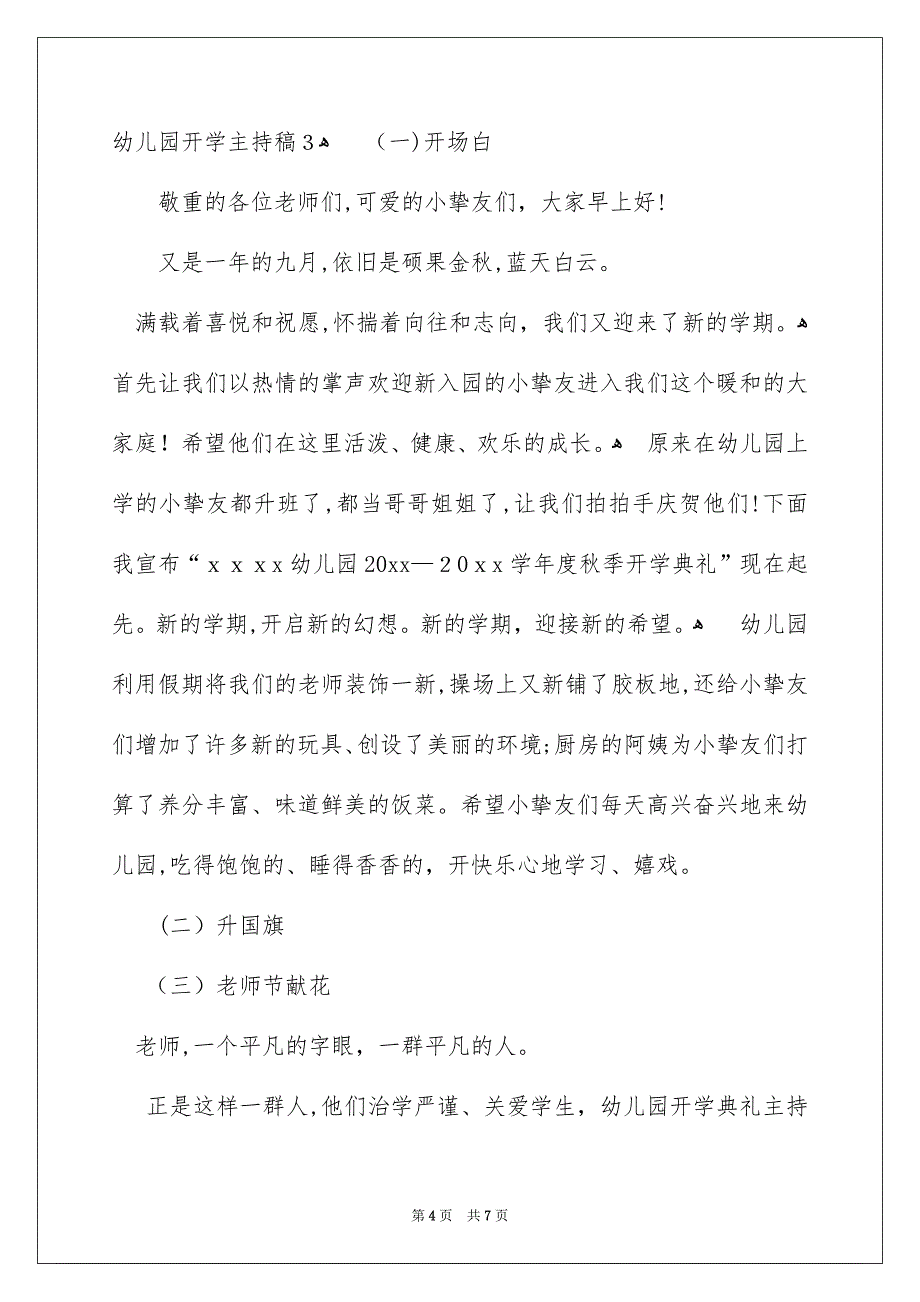 幼儿园开学主持稿3ﻫ （一)开场白
敬重的各位老师们,可爱的小挚友们，大家早上好!
又是一年的九月,依旧是硕果金秋,蓝天白云。
满载着喜悦和祝愿,怀揣着向往和志向，我们又迎来了新的学期。ﻫ
首先让我们以热情的掌声欢迎新入园的小挚友进入我们这个暖和的大
家庭！希望他们在这里活泼、健康、欢乐的成长。ﻫ 原来在幼儿园上
学的小挚友都升班了,都当哥哥姐姐了,让我们拍拍手庆贺他们!下面
我宣布“ｘｘｘx幼儿园20xx—２0ｘx学年度秋季开学典礼”现在起
先。新的学期,开启新的幻想。新的学期，迎接新的希望。ﻫ 幼儿园
利用假期将我们的老师装饰一新,操场上又新铺了胶板地,还给小挚友
们增加了许多新的玩具、创设了美丽的环境;厨房的阿姨为小挚友们打
算了养分丰富、味道鲜美的饭菜。希望小挚友们每天高兴奋兴地来幼
儿园,吃得饱饱的、睡得香香的，开快乐心地学习、嬉戏。
(二）升国旗
（三）老师节献花
老师,一个平凡的字眼，一群平凡的人。
正是这样一群人,他们治学严谨、关爱学生，幼儿园开学典礼主持
第4页 共7页